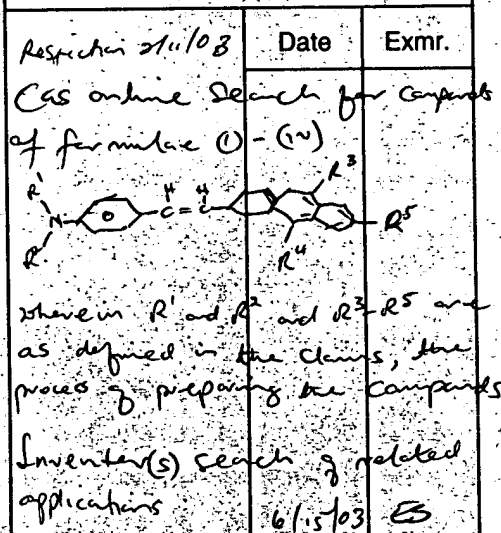 Restriction 2/11/03 Date Exmr.
Cas online Search for Compounds
of formulae (I) - (IV)
R' H H R³
N C = C R⁵
R² R⁴
wherein R' and R² and R³-R⁵ are
as defined in the claims, the
process of preparing the compounds
Inventor(s) search of related
applications 6/15/03 ES